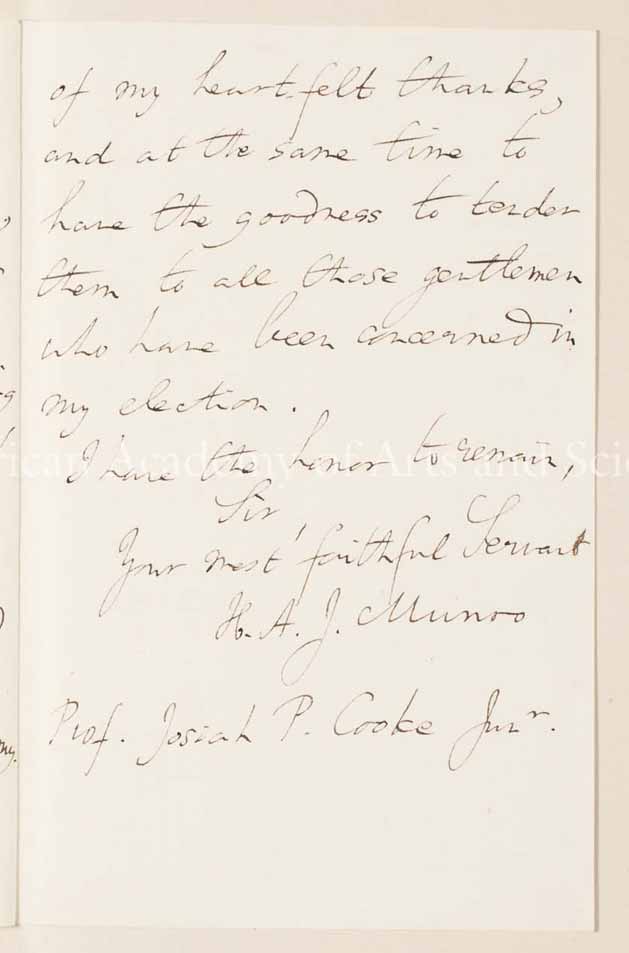 of my heart-felt thanks,
and at the same time to
have the goodness to tender
them to all those gentlemen
who have been concerned in
my election.
I have the honor to remain,
Sir,
Your most faithful Servant
H. A. J. Munro
Prof. Josiah P. Cooke Junr.
rican Academy of Arts and Scie